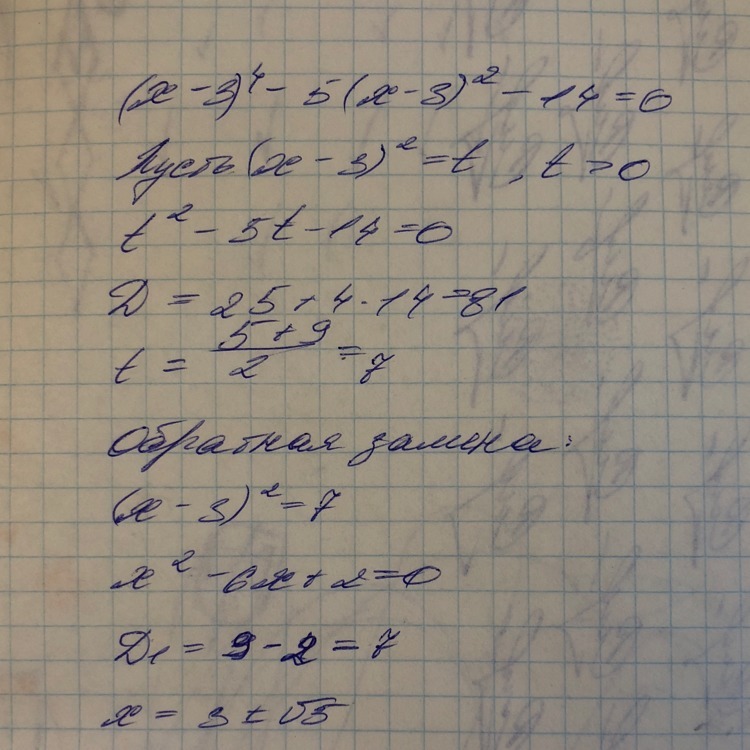 (x - 3)⁴ - 5(x - 3)² - 14 = 0
Пусть (x - 3)² = t, t > 0
t² - 5t - 14 = 0
D = 25 + 4 · 14 = 81
t = (5 + 9)/2 = 7
Обратная замена:
(x - 3)² = 7
x² - 6x + 2 = 0
D₁ = 9 - 2 = 7
x = 3 ± √5